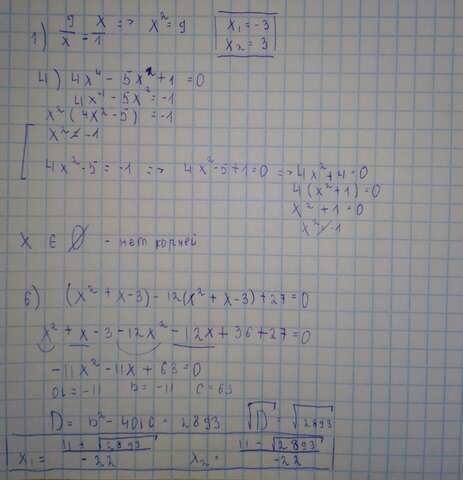 1) 9/x = x/1 => x² = 9 x₁ = -3
x₂ = 3
4) 4x⁴ - 5x² + 1 = 0
4x⁴ - 5x² = -1
x² (4x² - 5) = -1
x² = -1
4x² - 5 = -1 => 4x² - 5 + 1 = 0 => 4x² + 4 = 0
4(x² + 1) = 0
x² + 1 = 0
x² ≠ -1
x ∈ ∅ - нет корней
6) (x² + x - 3) - 12(x² + x - 3) + 27 = 0
x² + x - 3 - 12x² - 12x + 36 + 27 = 0
-11x² - 11x + 63 = 0
a = -11 b = -11 c = 63
D = b² - 4ac = 2893 √D = √2893
x₁ = (11 + √2893)/-22 x₂ = (11 - √2893)/-22